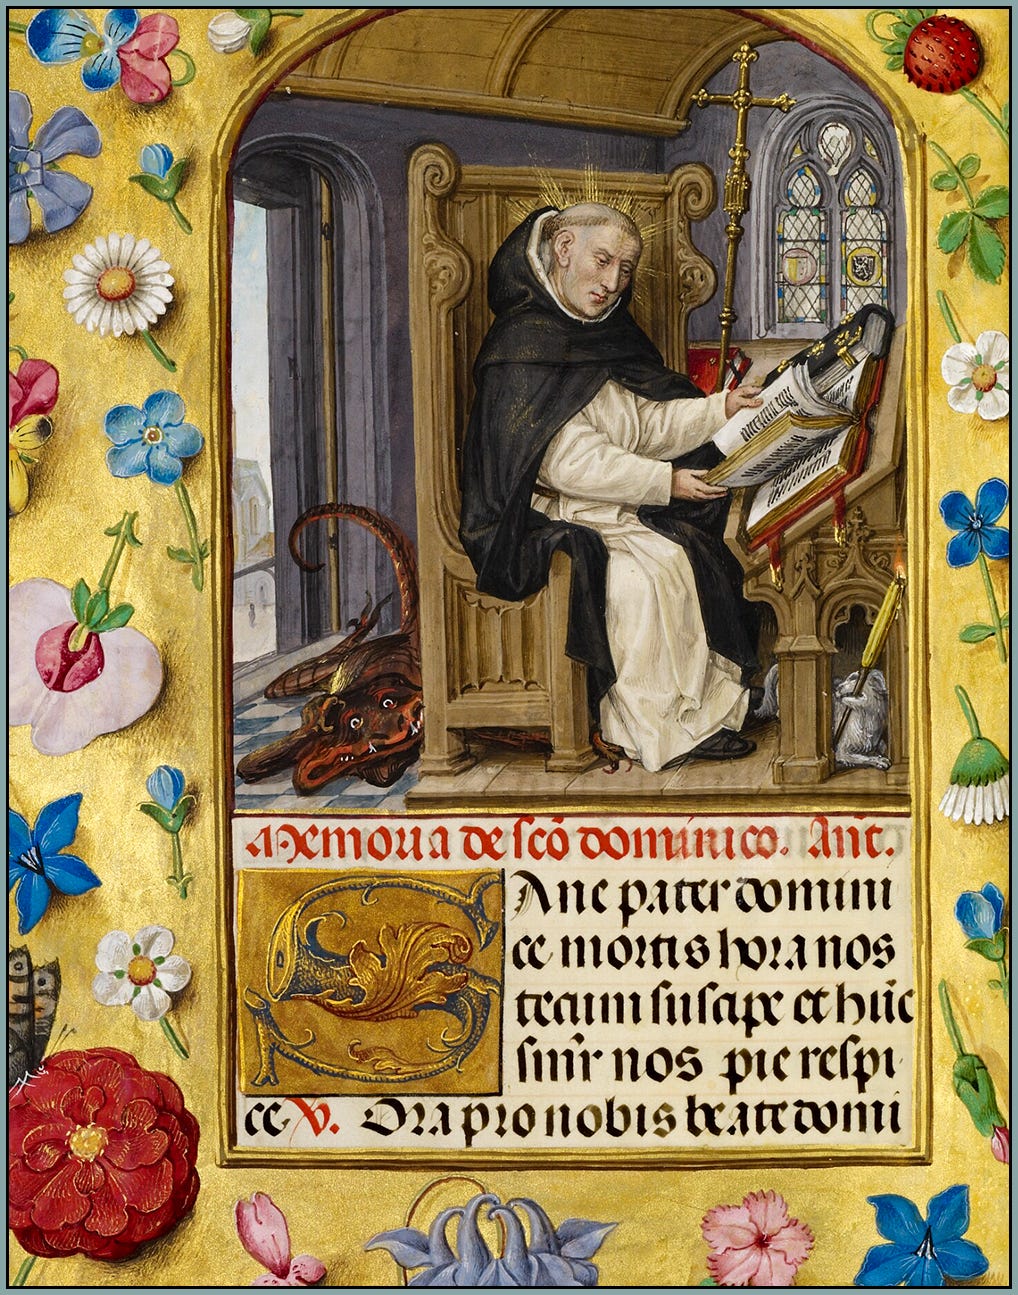 Memoria de sc̄o dominico. Ant̄.
Sane pater domini
ce mortis hora nos
tecum suscipe et hūc
semꝑ nos pie respi
ce V. Ora pro nobis beate domi